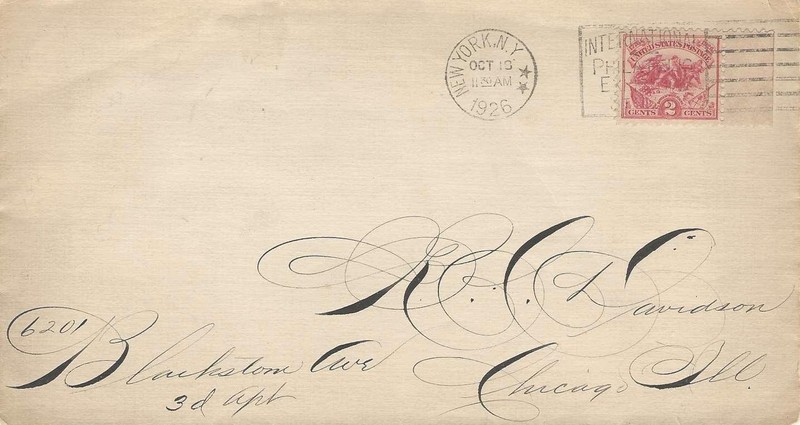 NEW YORK, N.Y.
OCT 18
11 30 AM
1926
INTERNATIONAL
PH
E
UNITED STATES POSTAGE
CENTS 2 CENTS
R. C. Davidson
6201
Blackstone Ave
Chicago Ill.
3d Apt